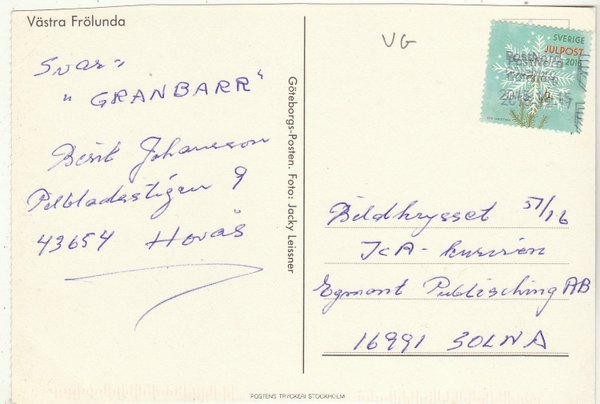 Västra Frölunda
Svar:
"GRANBARR"
Berit Johansson
Pilbladsstigen 9
43654 Hovås
Göteborgs-Posten. Foto: Jacky Leissner
VG
SVERIGE
JULPOST
2015
Bildkrysset 51/16
ICA-kuriren
Egmont Publisching AB
16991 SOLNA
POSTENS TRYCKERI STOCKHOLM